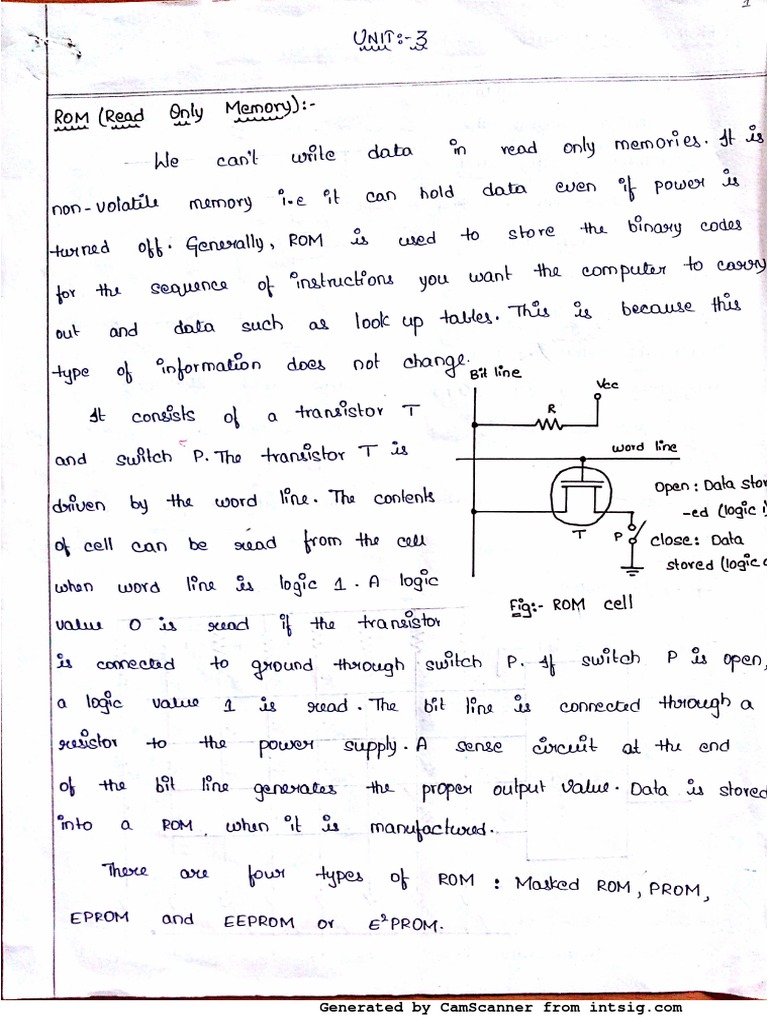 1
UNIT:-3
ROM (Read Only Memory):-
We can't write data in read only memories. It is
non-volatile memory i.e it can hold data even if power is
turned off. Generally, ROM is used to store the binary codes
for the sequence of instructions you want the computer to carry
out and data such as look up tables. This is because this
type of information does not change.
It consists of a transistor T
and switch P. The transistor T is
driven by the word line. The contents
of cell can be read from the cell
when word line is logic 1. A logic
value 0 is read if the transistor
Bit line
Vcc
R
word line
T
P
Open : Data stor
-ed (logic 1
close: Data
stored (logic
Fig:- ROM cell
is connected to ground through switch P. If switch P is open,
a logic value 1 is read. The bit line is connected through a
resistor to the power supply. A sense circuit at the end
of the bit line generates the proper output value. Data is stored
into a ROM, when it is manufactured.
There are four types of ROM : Masked ROM, PROM,
EPROM and EEPROM or E²PROM.
Generated by CamScanner from intsig.com